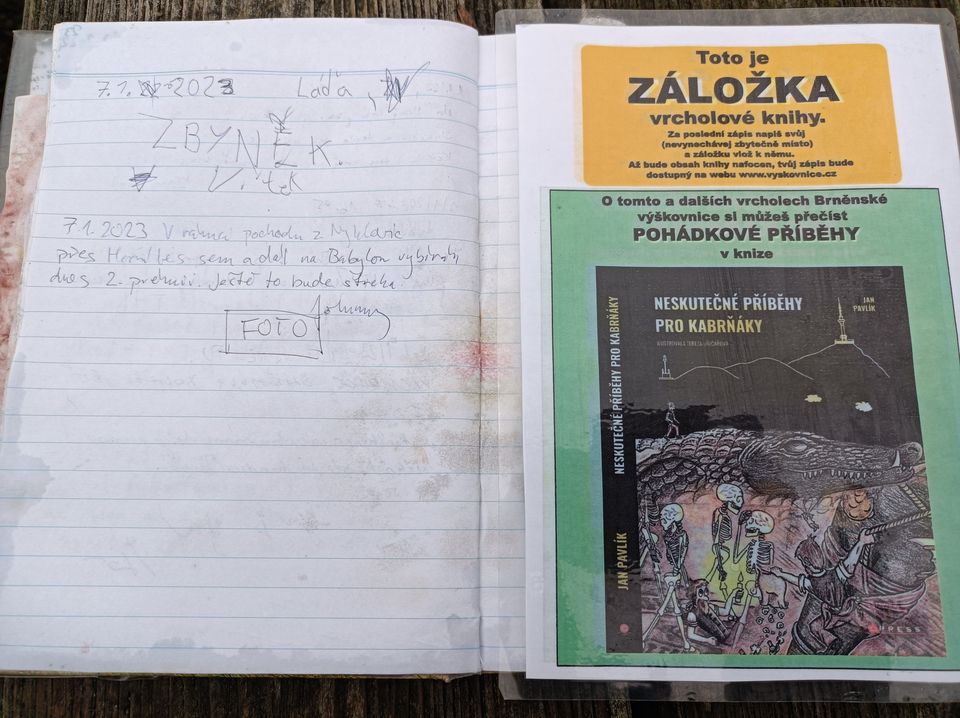 7.1. 2023 Láďa,
ZBYNĚK.
Vítek
7.1.2023 V rámci pochodu z
přes Horní les sem a dál na Babylon
dnes 2. prémii. Ještě to bude
FOTO
Toto je
ZÁLOŽKA
vrcholové knihy.
Za poslední zápis napiš svůj
(nevynechávej zbytečně místo)
a záložku vlož k němu.
Až bude obsah knihy nafocen, tvůj zápis bude
dostupný na webu www.vyskovnice.cz
O tomto a dalších vrcholech Brněnské
výškovnice si můžeš přečíst
POHÁDKOVÉ PŘÍBĚHY
v knize
NESKUTEČNÉ PŘÍBĚHY
PRO KABRŇÁKY
JAN
PAVLÍK
NESKUTEČNÉ PŘÍBĚHY PRO KABRŇÁKY
JAN PAVLÍK